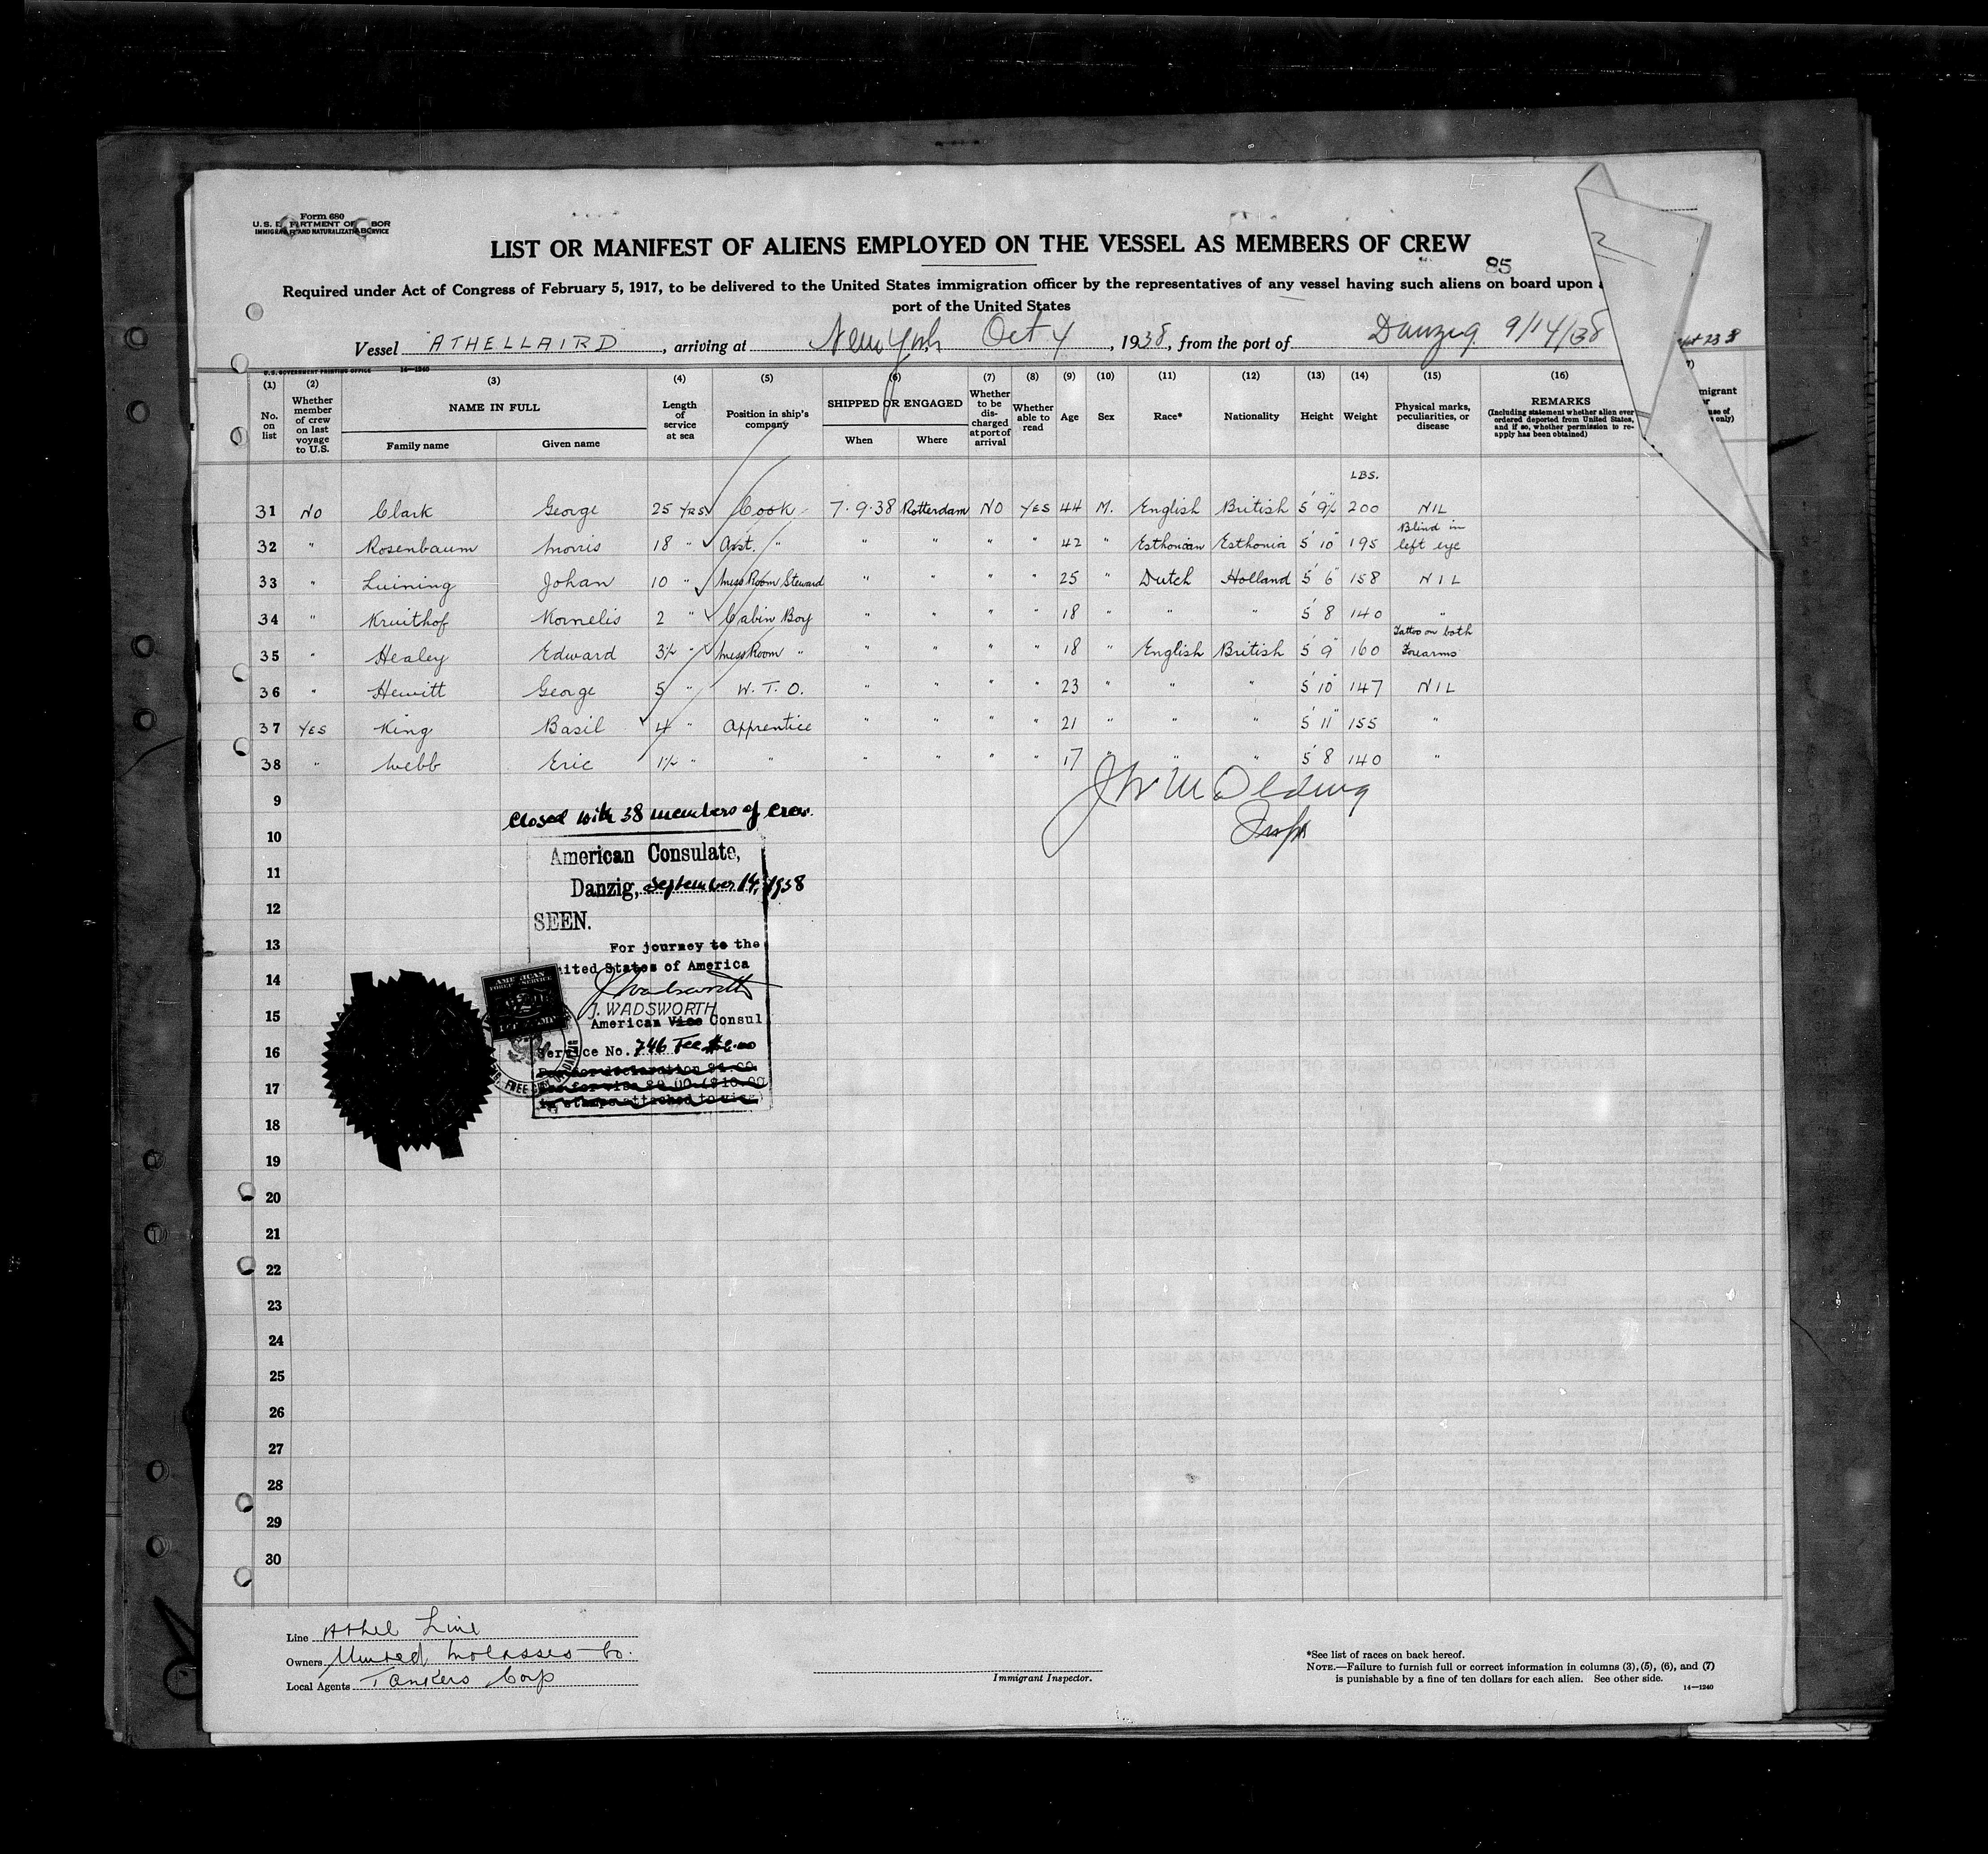 Form 680
U. S. DEPARTMENT OF LABOR
IMMIGRATION AND NATURALIZATION SERVICE
LIST OR MANIFEST OF ALIENS EMPLOYED ON THE VESSEL AS MEMBERS OF CREW
85
Required under Act of Congress of February 5, 1917, to be delivered to the United States immigration officer by the representatives of any vessel having such aliens on board upon
port of the United States
Vessel "ATHELLAIRD", arriving at New York, Oct 4, 1938, from the port of Danzig 9/14/38
U. S. GOVERNMENT PRINTING OFFICE 14—1240
(1) (2) (3) (4) (5) (6) (7) (8) (9) (10) (11) (12) (13) (14) (15) (16)
No. on list | Whether member of crew on last voyage to U.S. | NAME IN FULL Family name Given name | Length of service at sea | Position in ship's company | SHIPPED OR ENGAGED When Where | Whether to be discharged at port of arrival | Whether able to read | Age | Sex | Race* | Nationality | Height | Weight | Physical marks, peculiarities, or disease | REMARKS (Including statement whether alien ever ordered deported from United States, and if so, whether permission to reapply has been obtained)
LBS.
31 NO Clark George 25 YRS Cook 7.9.38 Rotterdam NO YES 44 M. English British 5' 9½" 200 NIL
32 " Rosenbaum Morris 18 " Asst. " " " " " 42 " Esthonian Esthonia 5' 10" 195 Blind in left eye
33 " Luining Johan 10 " Mess Room Steward " " " " 25 " Dutch Holland 5' 6" 158 NIL
34 " Kruithof Kornelis 2 " Cabin Boy " " " " 18 " " " 5' 8 140 "
35 " Healey Edward 3½ " Mess Room " " " " " 18 " English British 5' 9" 160 Tattoo on both Forearms
36 " Hewitt George 5 " W. T. O. " " " " 23 " " " 5' 10" 147 NIL
37 YES King Basil 4 " Apprentice " " " " 21 " " " 5' 11" 155 "
38 " Webb Eric 1½ " " " " " " 17 " " " 5' 8 140 "
9
Closed with 38 members of crew.
10
American Consulate,
11
Danzig, September 14, 1938
12
SEEN.
13
For journey to the
United States of America
14
J. Wadsworth
15
J. WADSWORTH
American Vice Consul
16
Service No. 746 Fee $
Fee for declaration $1.00
17
Fee for visa $9.00 ($10.00
in stamps attached to visa)
18
19
20
21
22
23
24
25
26
27
28
29
30
Line Athel Line
Owners United Molasses Co.
Local Agents Tankers Corp
Immigrant Inspector.
*See list of races on back hereof.
NOTE.—Failure to furnish full or correct information in columns (3), (5), (6), and (7)
is punishable by a fine of ten dollars for each alien. See other side.
14—1240